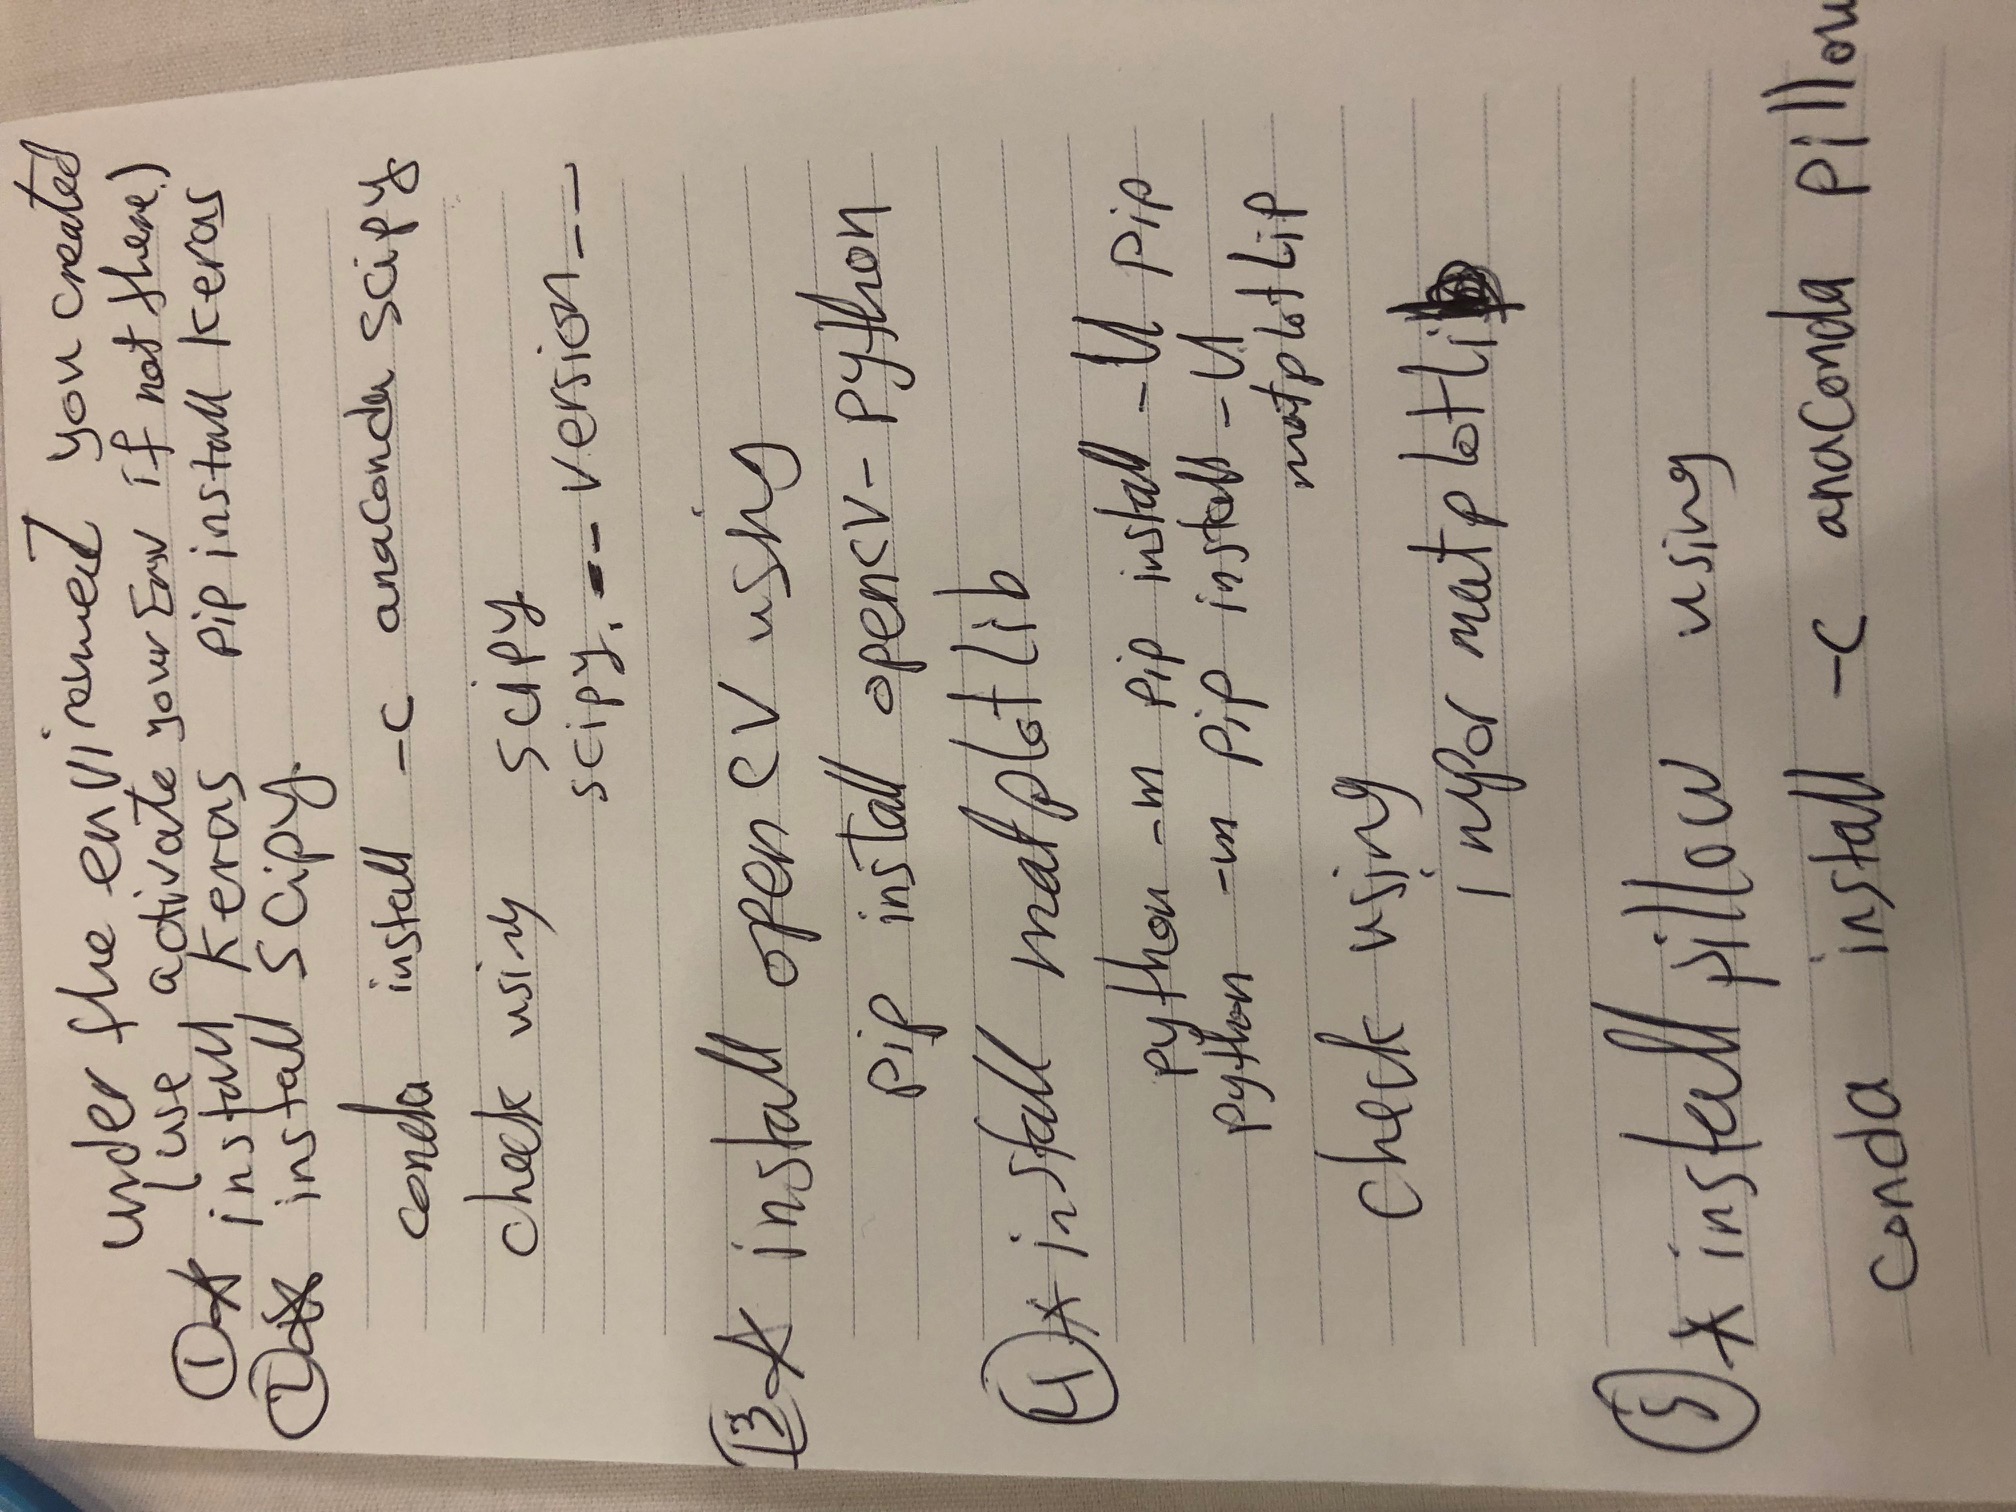 under the environment you created
(use activate your Env if not there.)
① * install keras pip install keras
② * install scipy.
conda install -c anaconda scipy
check using scipy
scipy.__version__
③ * install opencv using
pip install opencv-python
④ * install matplotlib
python -m pip install -U pip
python -m pip install -U
matplotlip
check using
impor matplotlib
⑤ * install pillow using
conda install -c anaconda pillow